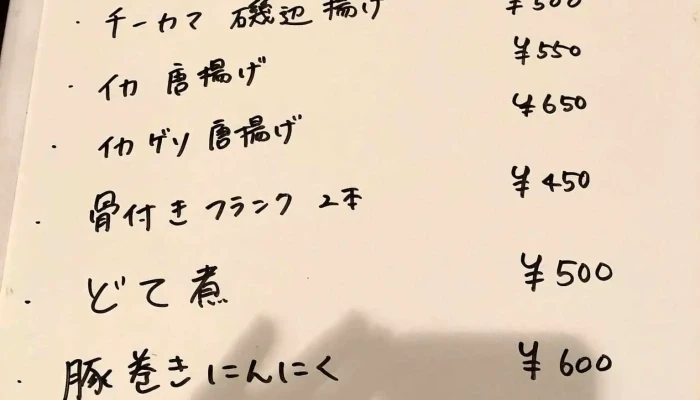 ・チーカマ 磯辺揚げ ¥500
・イカ 唐揚げ ¥550
・イカゲソ 唐揚げ ¥650
・骨付きフランク 2本 ¥450
・どて煮 ¥500
・豚巻きにんにく ¥600